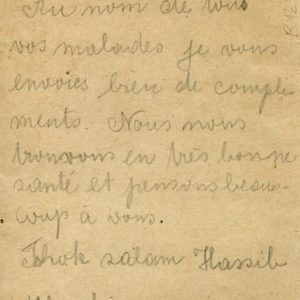 Au nom de tous
vos malades je vous
envoies bien de compli-
ments. Nous nous
trouvons en très bonne
santé et pensons beau-
coup à vous.
Tshok salam Hassib